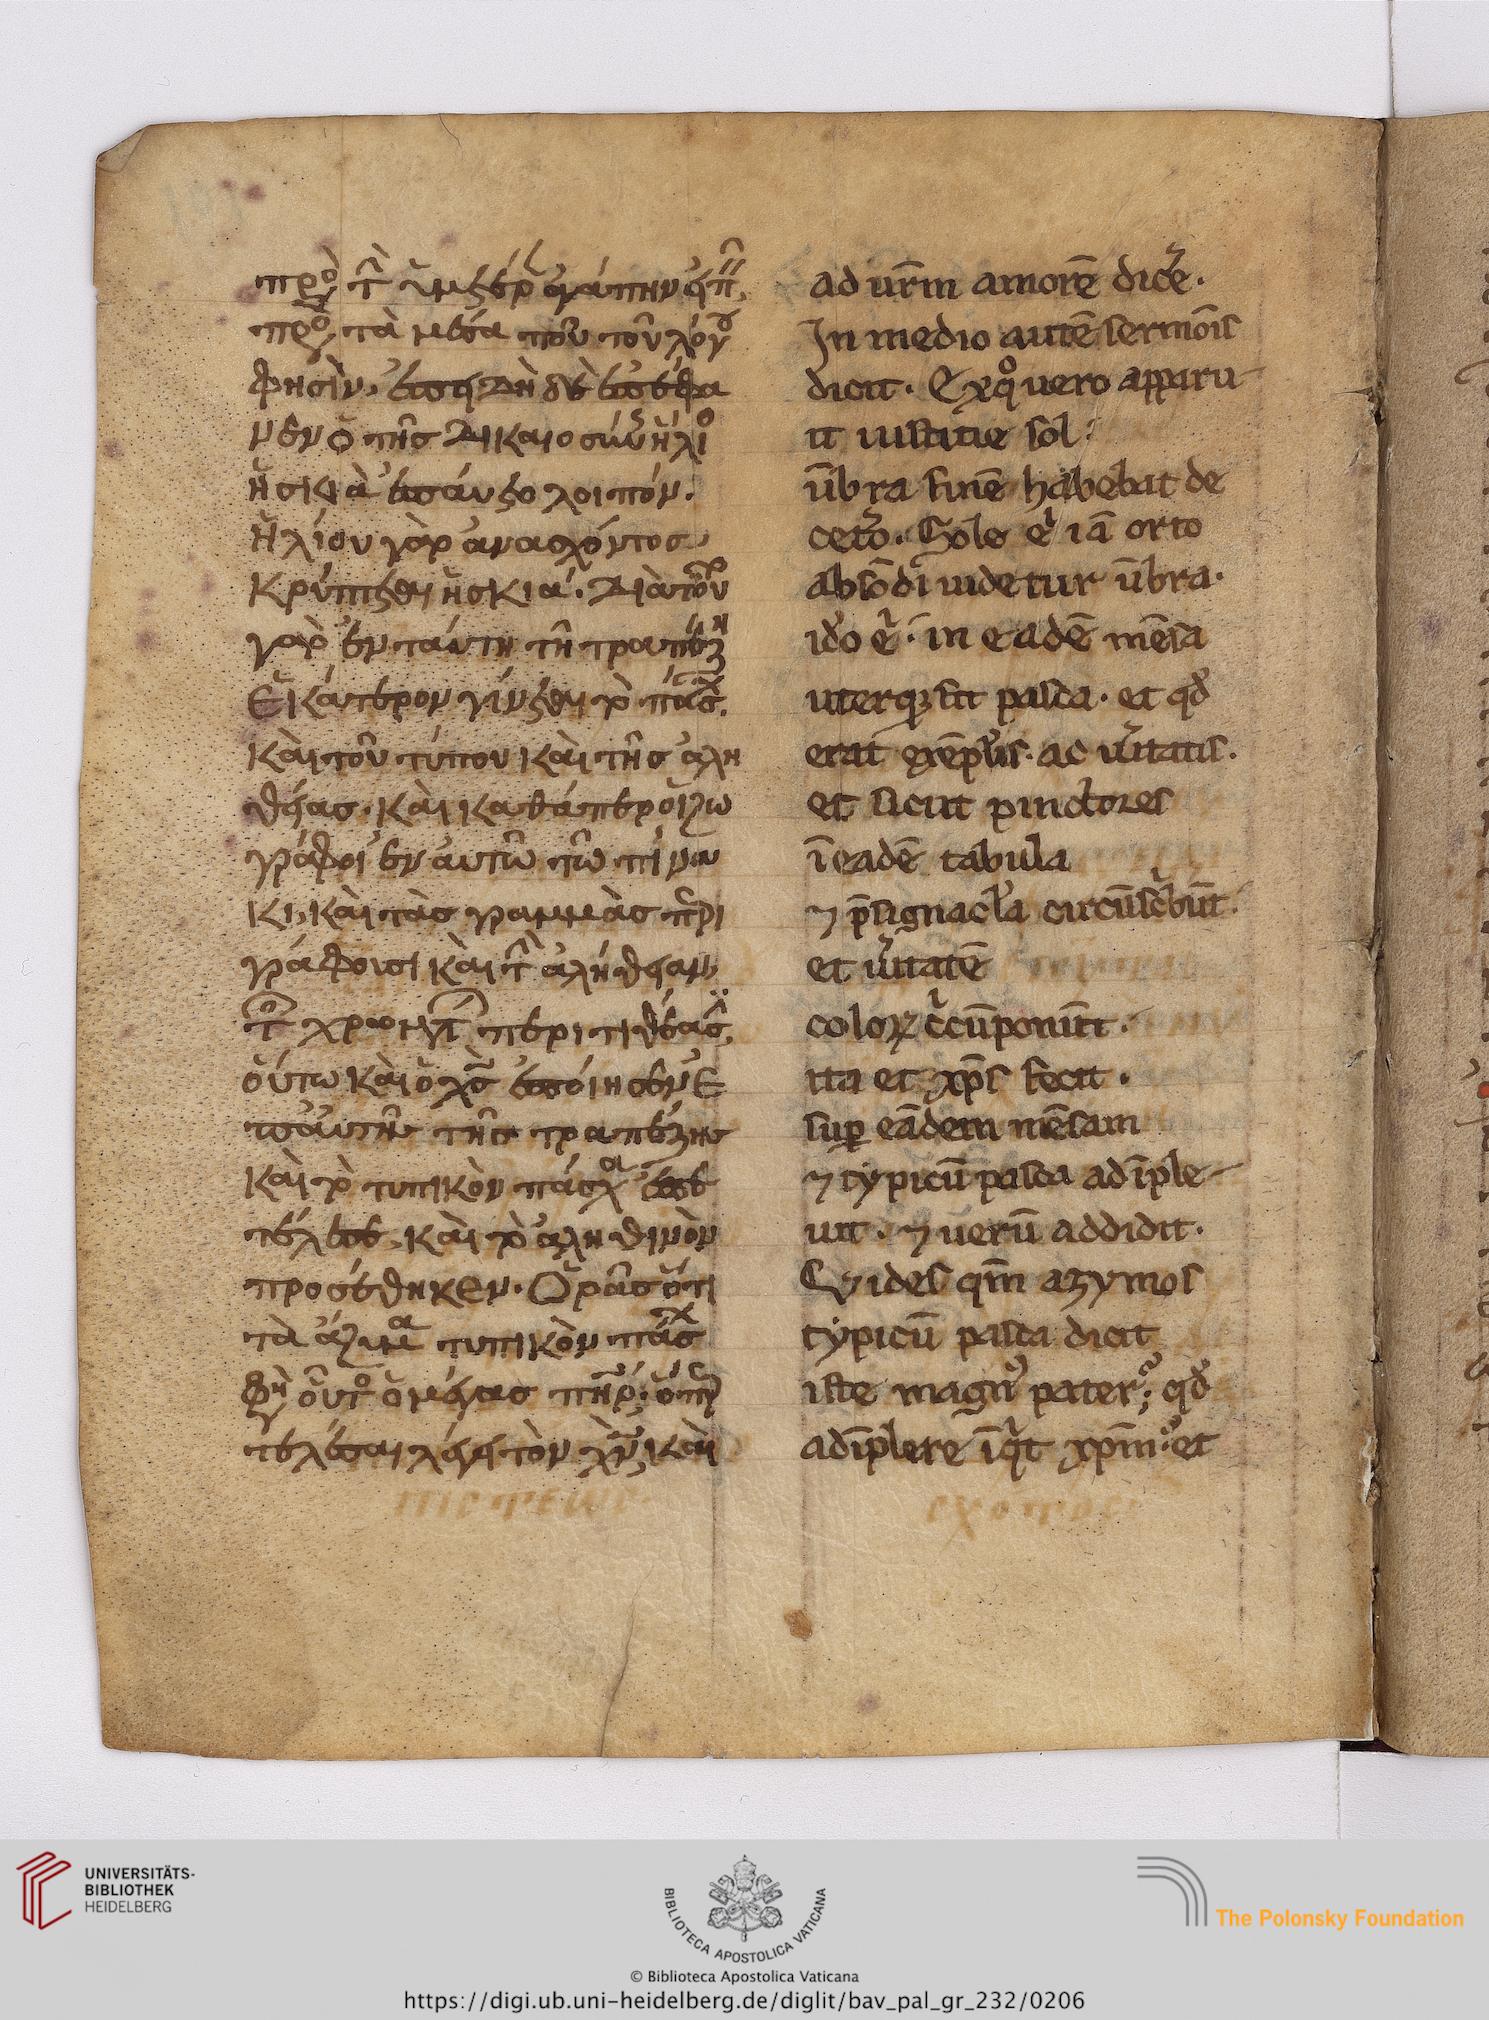 πρὸς τὴν ὑμετέραν ἀγάπην εἰπεῖν,
πρὸς τὰ μέσα που τοῦ λόγου
φησίν· ἐπειδὴ δὲ ἐπεφα
νεν ὁ τῆς δικαιοσύνης ἥλιος
ἡ σκιὰ ἐπαύετο λοιπόν·
Ἡλίου γὰρ ἀνασχόντος,
κρύπτεται ἡ σκιά· διὰ τοῦτο
γὰρ ἐν ταύτη τῆ τραπέζη
ἑκάτερον γίνεται τὸ πάσχα.
καὶ τοῦ τύπου καὶ τῆς ἀλη
θείας· καὶ καθάπερ οἱ ζω
γράφοι ἐν αὐτῶ τῶ πίνα
κι, καὶ τὰς γραμμὰς περι
γράφουσι καὶ τὴν ἀλήθειαν,
τῶν χρωμάτων περιτιθέασιν,
οὕτω καὶ ὁ χς ἐποίησεν ἐ
π' αὐτῆς τῆς τραπέζης
καὶ τὸ τυπικὸν πάσχα ἐπε
τέλεσε, καὶ τὸ ἀληθινὸν
προσέθηκεν· Ὁρᾶς ὅτι
τὰ ἄζυμα τυπικὸν πάσχα
φησὶν οὗτος ὁ μέγας πηρ; ὅπερ
τελέσαι λέγει τὸν χν, καὶ
ad ur̄m amorē dicere·
In medio autē sermōis
dicit· Ex quo uero apparu
it iustitie sol:
ūbra finē habebat de
cetero· Sole enim iā orto
absōdi uidetur ūbra·
ideo enim· in eadē mēsa
uterq; fit pasca· et quod
erat exēplaris· ac ueritatis·
et sicut pinctores
ī eadē tabula
⁊ p̄signacula circūscribūt·
et ueritatē
coloꝝ circūponūt·
ita et xp̄s fecit·
suꝑ eādem mēsam
⁊ typicū pasca adīple
uit· ⁊ uerū addidit·
Vides qm̄ azymos
typicū pasca dicit
iste magnus pater; quod
adīplere īquit xp̄m· et
UNIVERSITÄTS-
BIBLIOTHEK
HEIDELBERG
BIBLIOTECA APOSTOLICA VATICANA
The Polonsky Foundation
© Biblioteca Apostolica Vaticana
https://digi.ub.uni-heidelberg.de/diglit/bav_pal_gr_232/0206